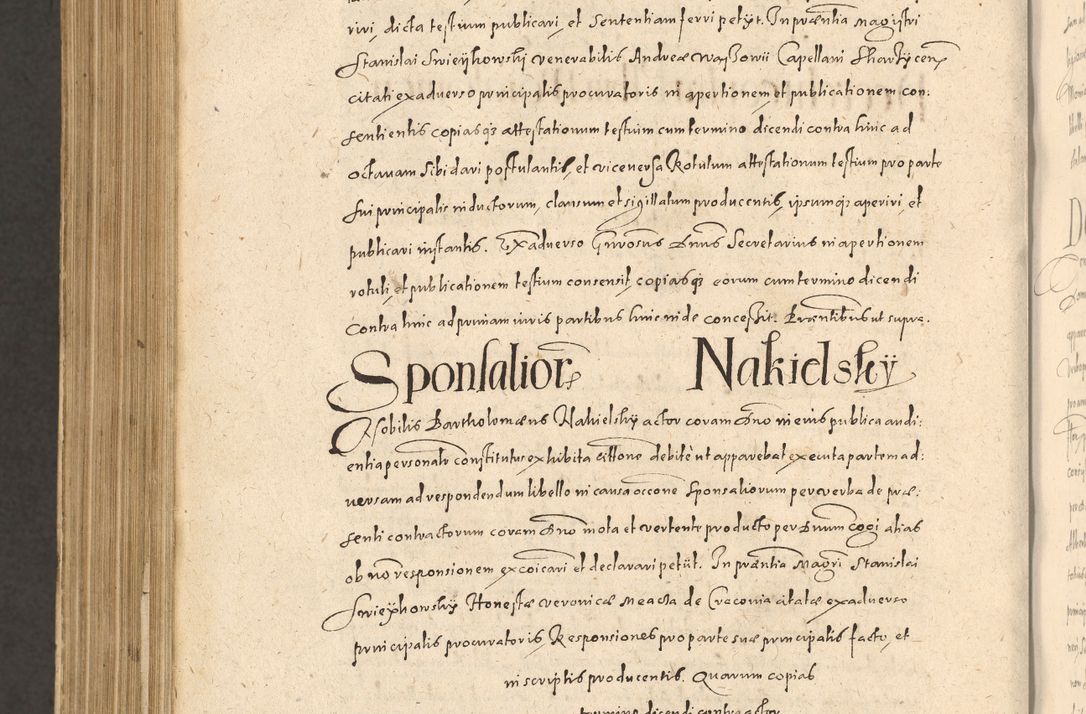 rivi, dicta testium publicari, et Sententiam ferri petijt. In præntia Magistri
Stanislai Swieÿhowskÿ venerabilis Andreæ Waßowii Capellani
citati ex adverso principalis procuratoris in apertionem et publicationem con:
sentientis copiasq3 attestationum testium cum termino dicendi contra hinc ad
octavam Sibi dari postulantis, et vice versa Rotulum attestationum testium pro parte
sui principalis inductorum, clausum et sigillatum producentis, ipsumq3 aperiri, et
publicari instantis. Ex adverso Gnrosus Dnus Secretarius in apertionem
rotuli, et publicationem testium consensit, copiasq3 eorum cum termino dicendi
Contra hinc ad primam iuris partibus hinc inde concessit. Præntibus ut supra.
Sponsalior Nakielskÿ
Nobilis Bartholomæus Nakielskÿ actor coram Dno in eius publica audi:
entia personalr constitutus exhibita Cittone debitè ut apparebat executa partem ad:
versam ad respondendum libello in causa occone Sponsaliorum per verba de præ:
senti contractorum coram Dno mota et vertente producto per Dnum cogi alias
ob no responsionem excoicari et declarari petiit. In præntia Magri Stanislai
Swieÿhowskÿ Honestæ Veronicæ de Cracovia citatæ ex adverso
principalis procuratoris, Responsiones pro parte suæ principalis facto, et
in scriptis producentis. Quarum copias
termino dicendi contra actor